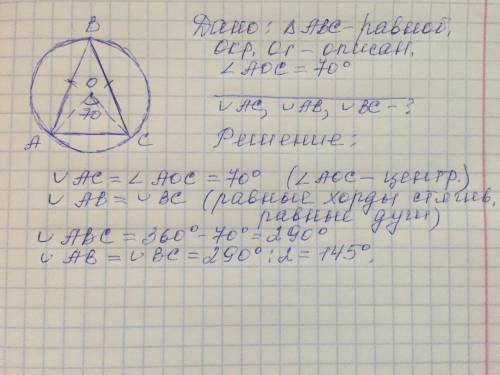 B
O
70
A
C
Дано: △ABC-равноб,
Окр, Or-описан,
∠AOC=70°
∪AC, ∪AB, ∪BC-?
Решение:
∪AC=∠AOC=70° (∠AOC-центр.)
∪AB=∪BC (равные хорды стягив.
равные дуги)
∪ABC=360°-70°=290°
∪AB=∪BC=290°:2=145°.